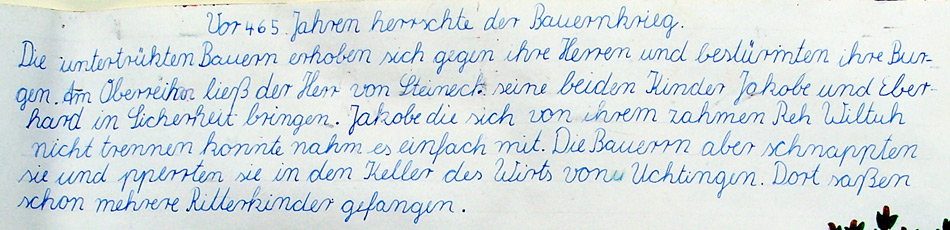 Vor 465 Jahren herrschte der Bauernkrieg.
Die untertrükten Bauern erhoben sich gegen ihre Herren und bestürmten ihre Bur-
gen. Am Oberreihn ließ der Herr von Steineck seine beiden Kinder Jakobe und Eber-
hard in Sicherheit bringen. Jakobe die sich von ihrem zahmen Reh Wiltuh
nicht trennen konnte nahm es einfach mit. Die Bauern aber schnappten
sie und pperrten sie in den Keller des Wirts von Uchtingen. Dort saßen
schon mehrere Ritterkinder gefangen.